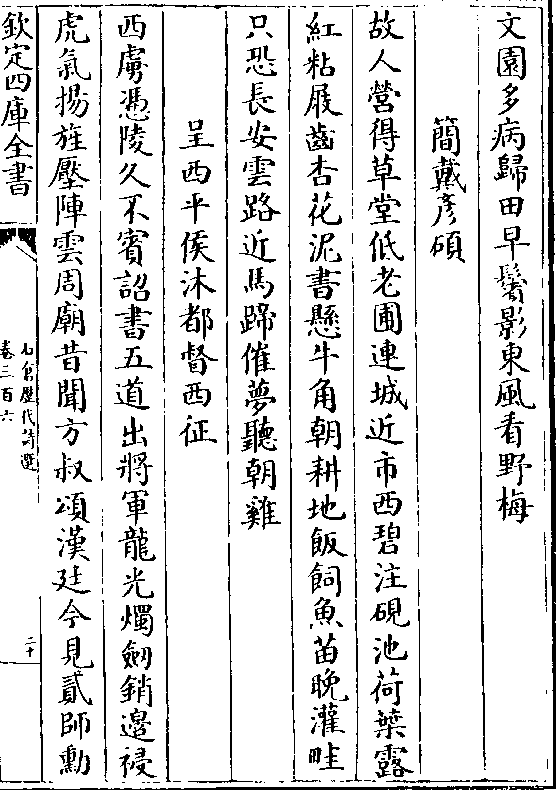 文園多病歸田早鬢影東風看野梅
簡戴彦碩
故人營得草堂低老圃連城近市西碧注硯池荷葉露
紅粘屐齒杏花泥書懸牛角朝耕地飯飼魚苗晚灌畦
只恐長安雲路近馬蹄催夢聽朝雞
呈西平侯沐都督西征
西虜憑陵久不賓詔書五道出將軍龍光燭劒銷邊祲
虎氣揚旌壓陣雲周廟昔聞方叔頌漢廷今見貳師勳
欽定四庫全書
石倉歷代詩選
卷三百六
二十